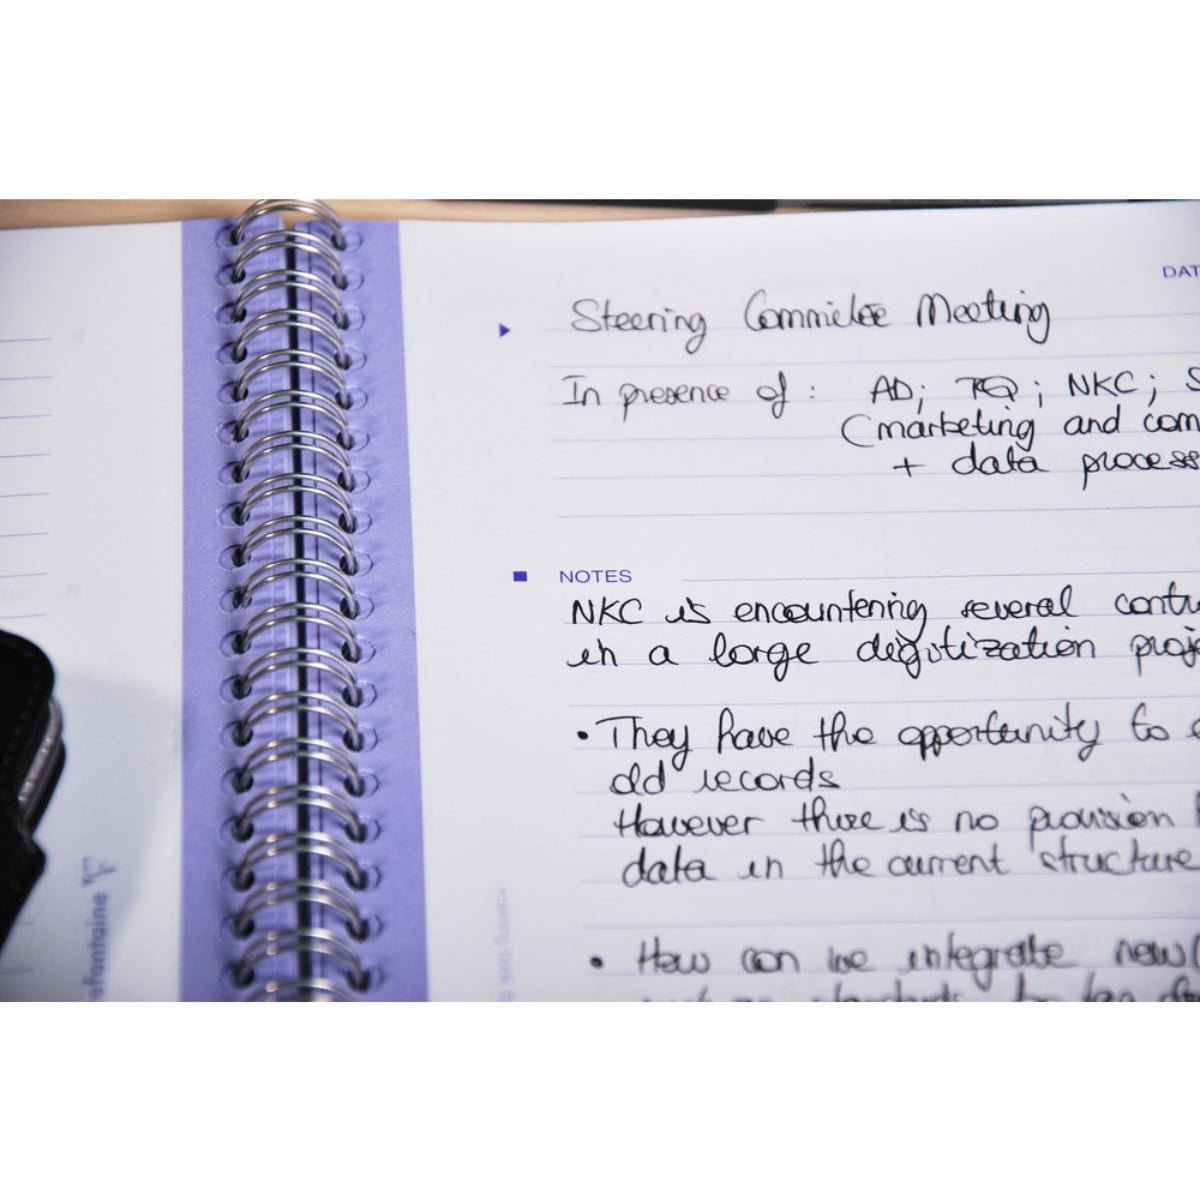 DAT
Steering Committee Meeting
In presence of : AD; TQ; NKC; S
(marketing and com
+ data processe
NOTES
NKC is encountering several contr
in a large digitization proj
• They have the opportunity to
old records
However there is no provision
data in the current structure
• How can we integrate new
efontaine
meeting book